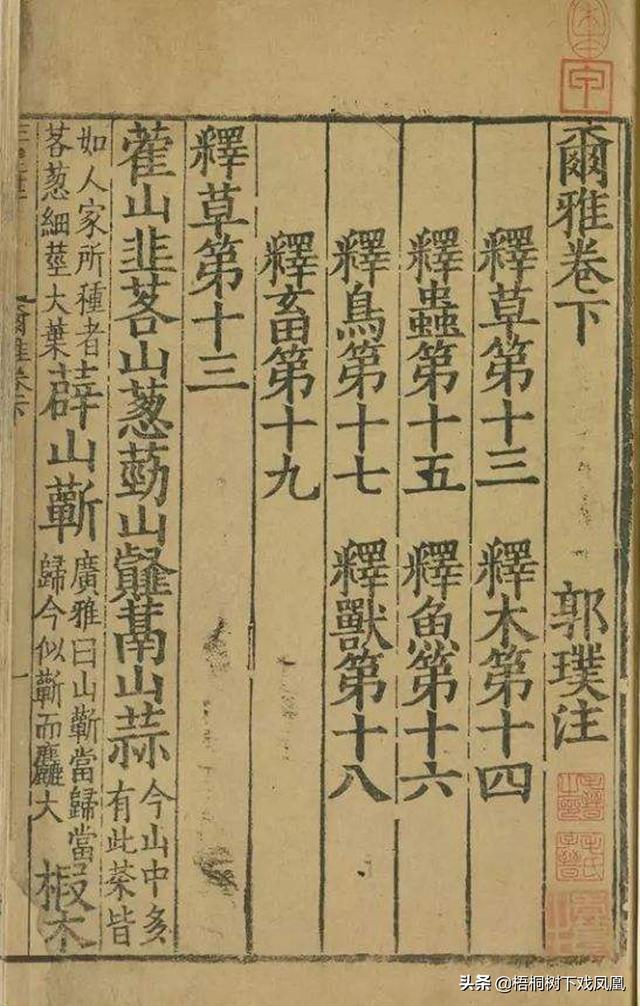 爾雅卷下 郭璞注
釋草第十三 釋木第十四
釋蟲第十五 釋魚第十六
釋鳥第十七 釋獸第十八
釋畜第十九
釋草第十三
藿山韭茖山葱葝山䪥蒚山蒜 今山中多有此菜皆
如人家所種者茖葱細莖大葉 薜山蘄 廣雅曰山蘄當歸當歸今似蘄而麤大 椵木
爾雅卷下
头条 @梧桐树下戏凤凰